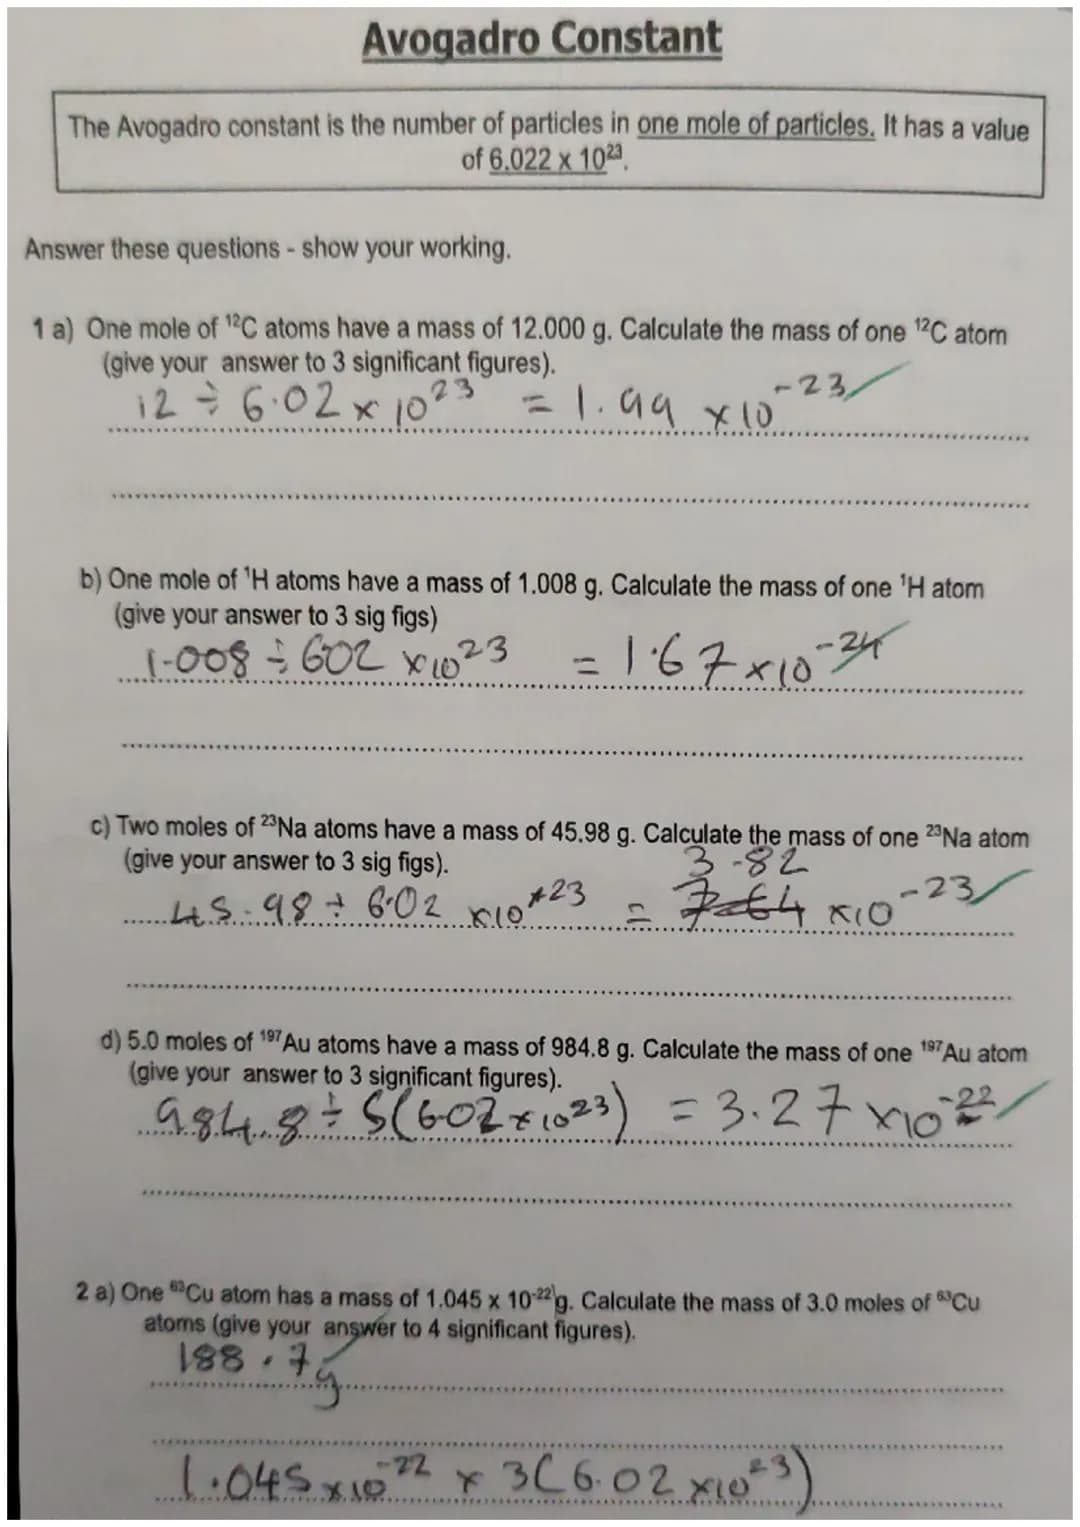 Avogadro Constant
The Avogadro constant is the number of particles in one mole of particles. It has a value
of 6.022 x 10²³.
Answer these questions - show your working.
1 a) One mole of ¹²C atoms have a mass of 12.000 g. Calculate the mass of one ¹²C atom
(give your answer to 3 significant figures).
12 ÷ 6.02 × 10²³ = 1.99 ×10⁻²³
b) One mole of ¹H atoms have a mass of 1.008 g. Calculate the mass of one ¹H atom
(give your answer to 3 sig figs)
1.008 ÷ 602 ×10²³ = 1.67×10⁻²⁴
c) Two moles of ²³Na atoms have a mass of 45.98 g. Calculate the mass of one ²³Na atom
(give your answer to 3 sig figs).
3.82
45.98 ÷ 6.02 ×10²³ = 7.64 ×10⁻²³
d) 5.0 moles of ¹⁹⁷Au atoms have a mass of 984.8 g. Calculate the mass of one ¹⁹⁷Au atom
(give your answer to 3 significant figures).
984.8 ÷ 5(6.02 × 10²³) = 3.27 ×10⁻²²
2 a) One ⁶³Cu atom has a mass of 1.045 x 10⁻²² g. Calculate the mass of 3.0 moles of ⁶³Cu
atoms (give your answer to 4 significant figures).
188.7g
1.045 ×10⁻²² × 3(6.02 ×10²³)